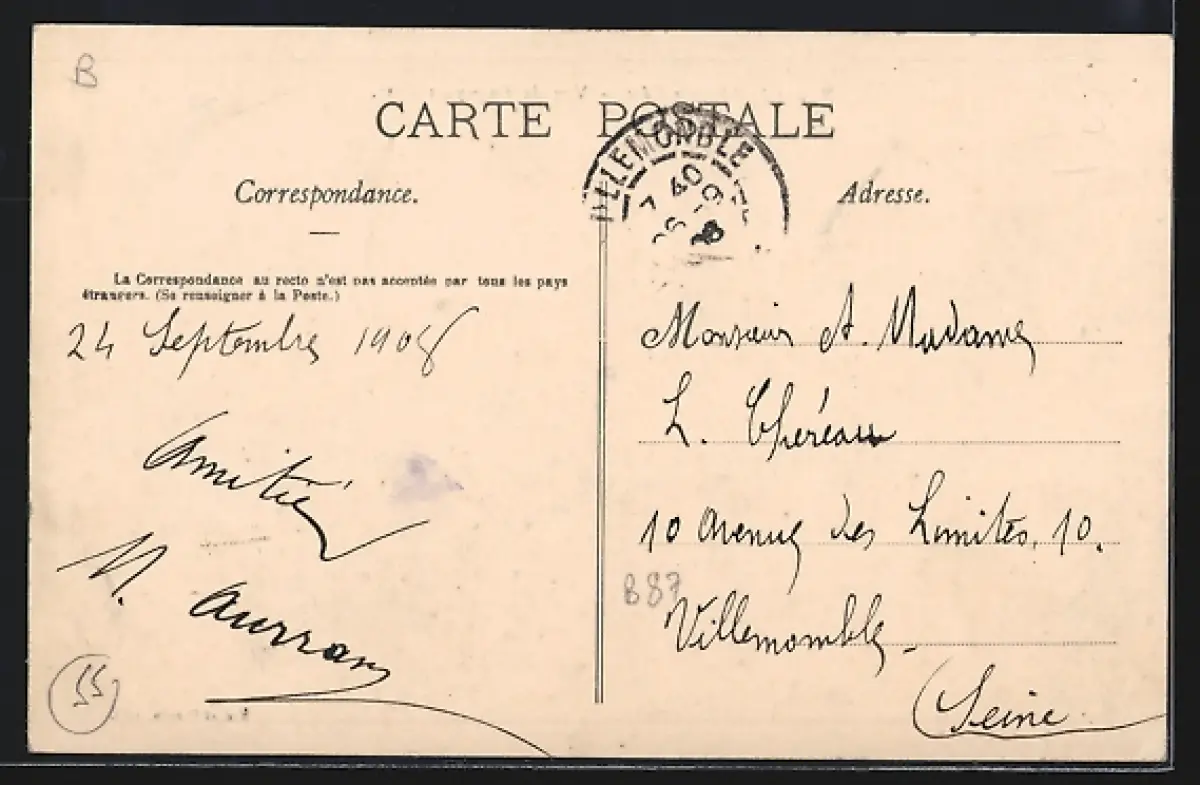 B
CARTE POSTALE
Correspondance.
La Correspondance au recto n'est pas acceptée par tous les pays
étrangers. (Se renseigner à la Poste.)
24 Septembre 1908
Amitiés
M.
55
VILLEMOMBLE
7 40
Adresse.
Monsieur et Madame
L. Théreau
10 Avenue des Limites, 10.
B 87
Villemomble.
(Seine.